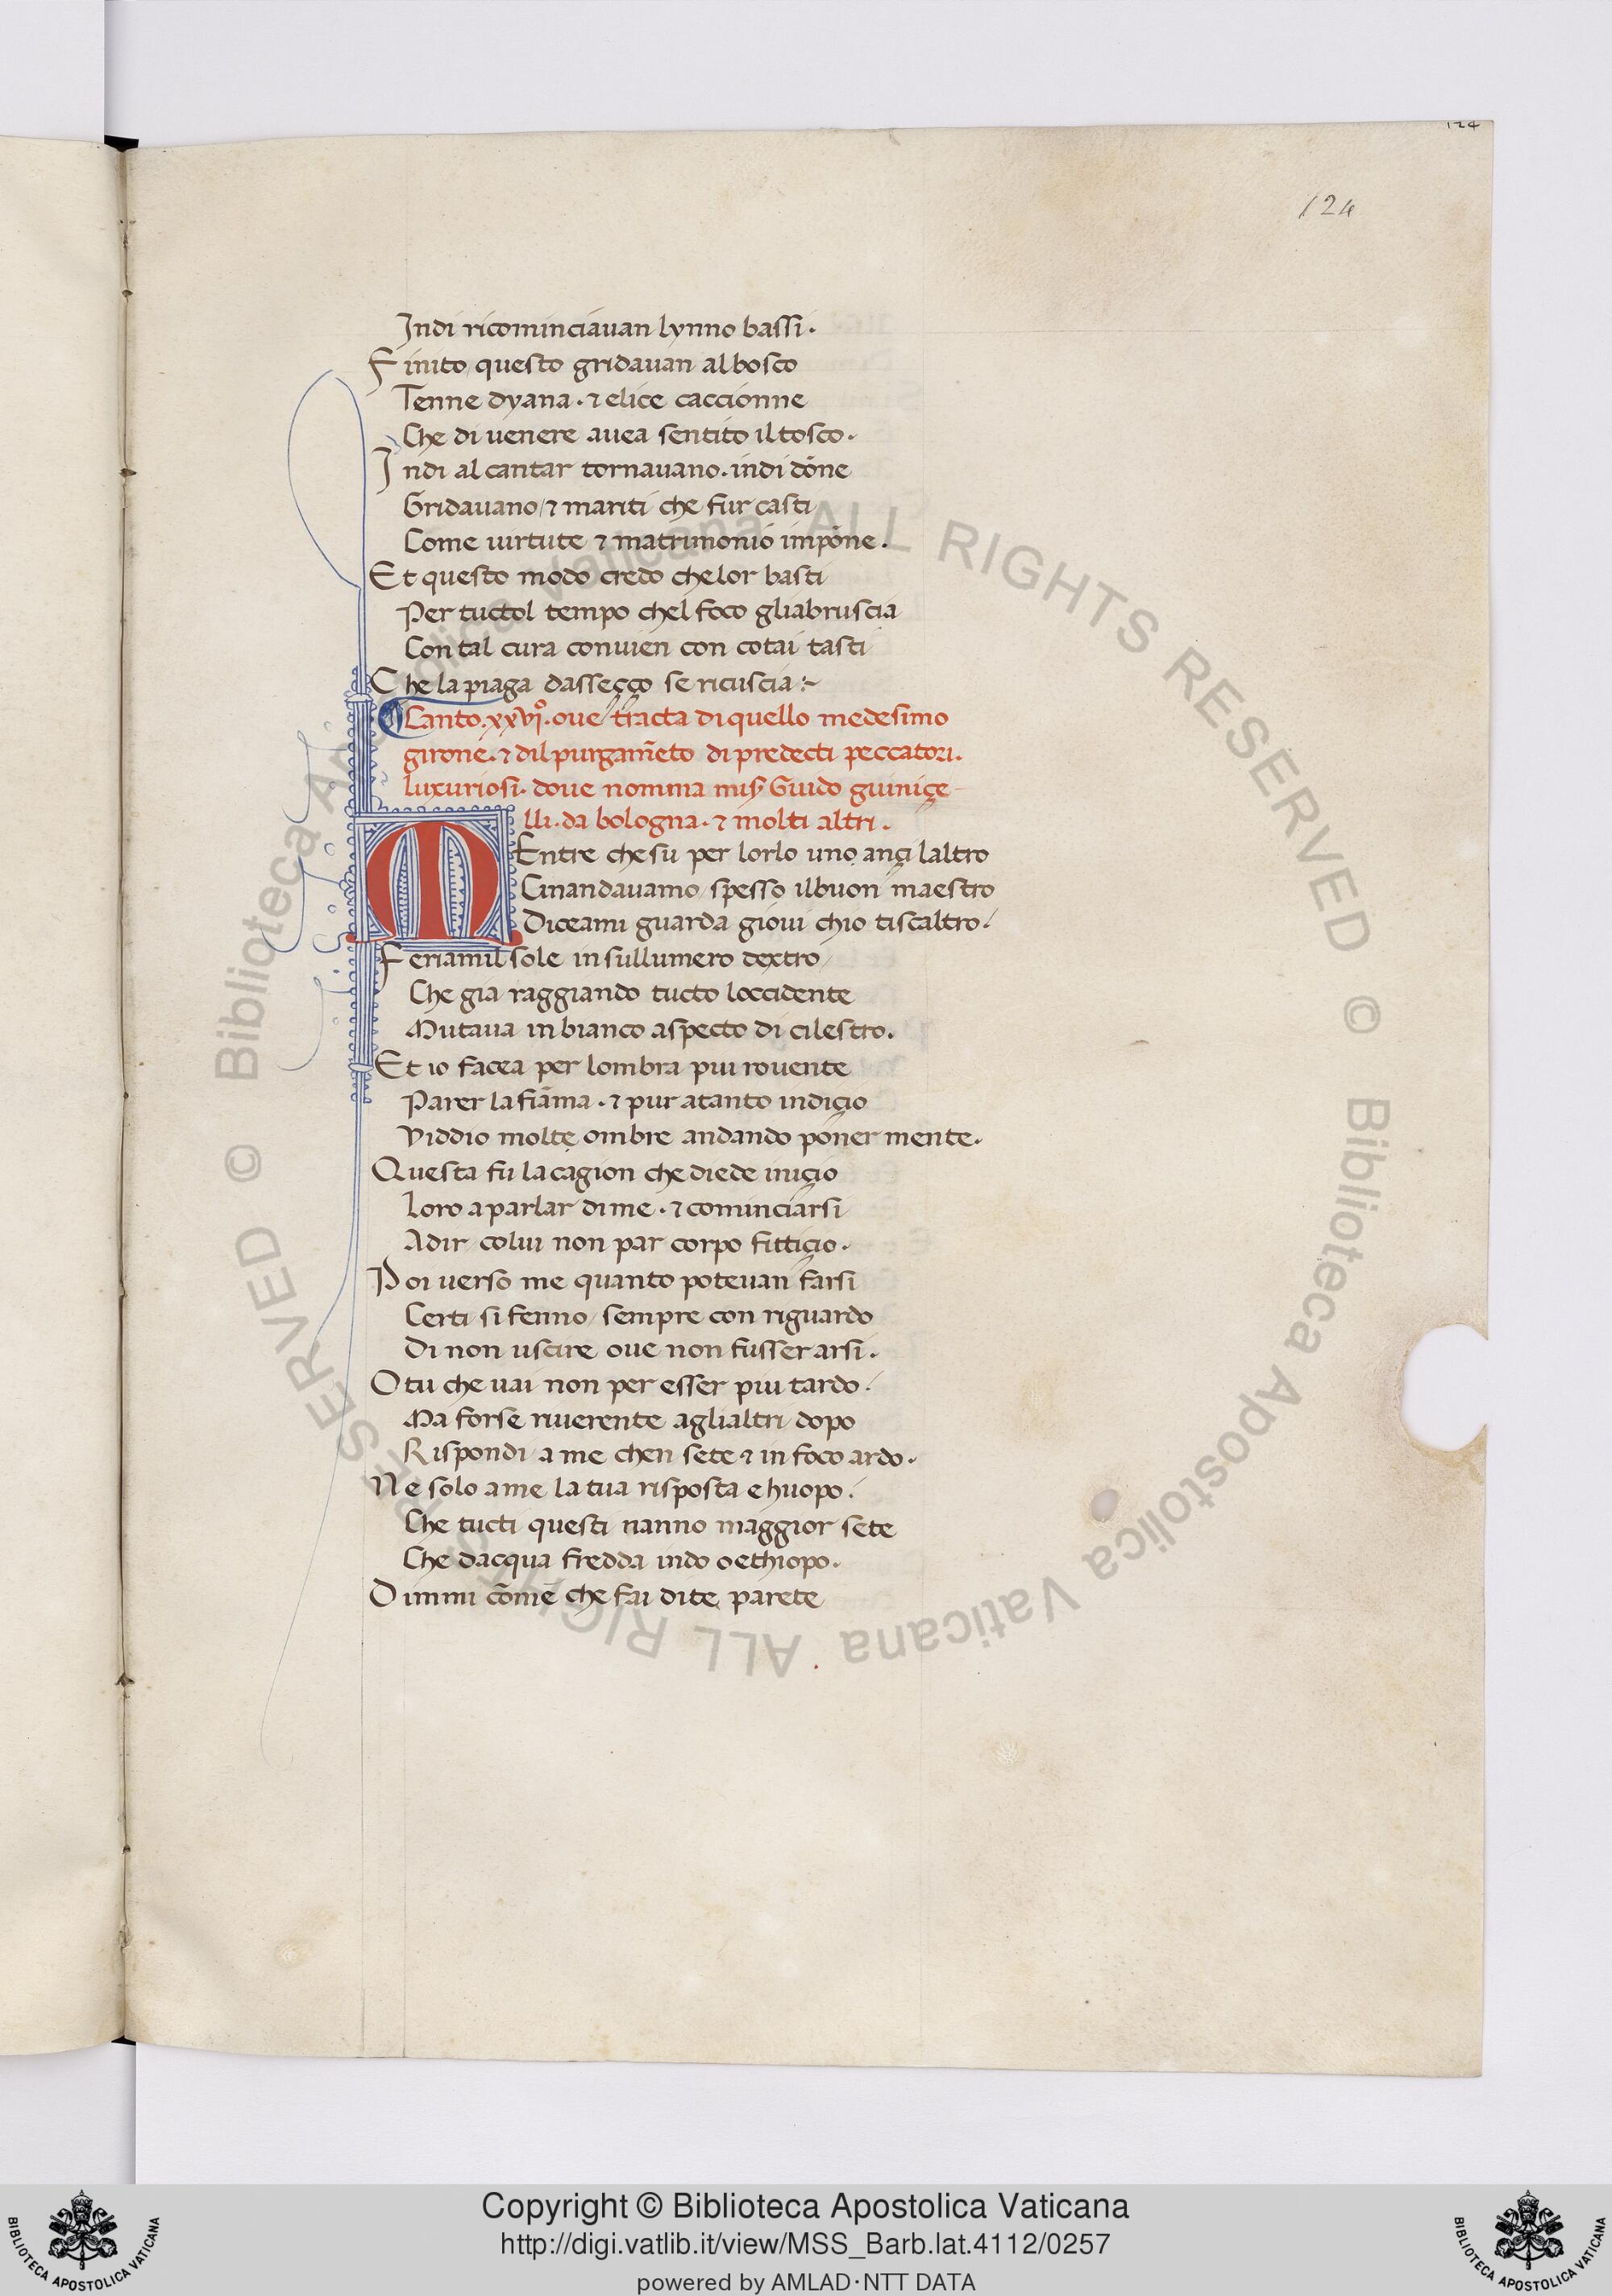 124
124
Indi ricominciavan lynno bassi.
Finito questo gridauan albosco
Tenne dyana. ⁊ elice caccionne
Che di uenere auea sentito iltosco.
Indi al cantar tornauano. indi dōne
Gridauano/ ⁊ mariti che fur casti
Come uirtute ⁊ matrimonio impōne.
Et questo modo credo chelor basti
Per tuctol tempo chel foco gliabruscia
Con tal cura conuien con cotai tasti
Che la piaga dasseçço se ricuscia :~
¶ Canto. xxvıͦ. oue tracta di quello medesimo
girone. ⁊ dil purgam̄eto di predecti peccatori.
luxuriosi. doue nomma mis̄ Guido guiniçe
lli. da bologna. ⁊ molti altri.
MEntre chesu per lorlo uno ançi laltro
Cinandauamo/ spesso ilbuon maestro
Diceami guarda gioui chio tiscaltro.
Feriamil sole in sullumero dextro
Che gia raggiando tucto loccidente
Mutaua in bianco aspecto di cilestro.
Et io facea per lombra piu rouente
Parer la fiāma. ⁊ pur atanto indiçio
Viddio molte ombre andando poner mente.
Questa fu la cagion che diede iniçio
Loro a parlar di me. ⁊ cominciarsi
Adir/ colui non par corpo fittiçio.
Poi verso me quanto poteuan farsi
Certi si fenno/ sempre con riguardo
Di non uscire oue non fusser arsi.
O tu che uai non per esser piu tardo.
Ma forse riuerente aglialtri dopo
Rispondi a me chen sete ⁊ in foco ardo.
Ne solo ame la tua risposta e huopo.
Che tucti questi nanno maggior sete
Che dacqua fredda indo o ethiopo.
Dimmi cōmē che fai di te parete
© Biblioteca Apostolica Vaticana ALL RIGHTS RESERVED © Biblioteca Apostolica Vaticana ALL RIGHTS RESERVED
Copyright © Biblioteca Apostolica Vaticana
http://digi.vatlib.it/view/MSS_Barb.lat.4112/0257
powered by AMLAD·NTT DATA
BIBLIOTECA APOSTOLICA VATICANA
BIBLIOTECA APOSTOLICA VATICANA